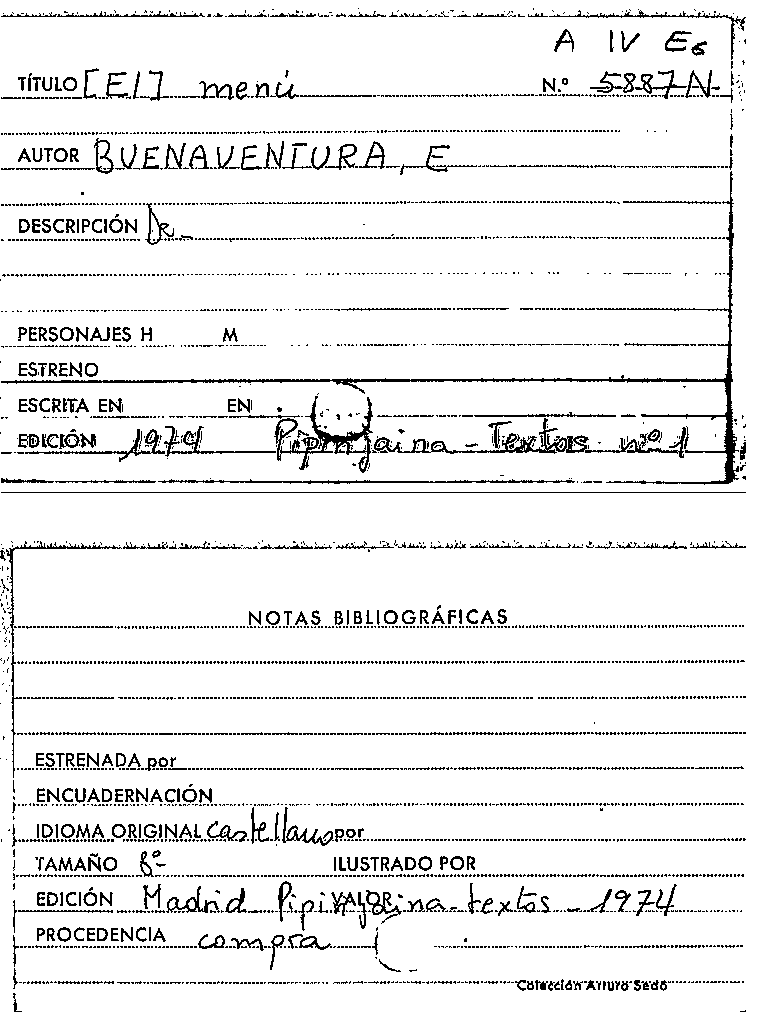 A IV E6
TÍTULO [El] menú N.º 5887-N
AUTOR BUENAVENTURA, E
DESCRIPCIÓN
PERSONAJES H M
ESTRENO
ESCRITA EN EN
EDICIÓN 1974 Pipirijaina - Textos nº 1
NOTAS BIBLIOGRÁFICAS
ESTRENADA por
ENCUADERNACIÓN
IDIOMA ORIGINAL castellano por
TAMAÑO 8º ILUSTRADO POR
EDICIÓN Madrid Pipirijaina-textos - 1974 VALOR
PROCEDENCIA compra
Colección Arturo Sedó